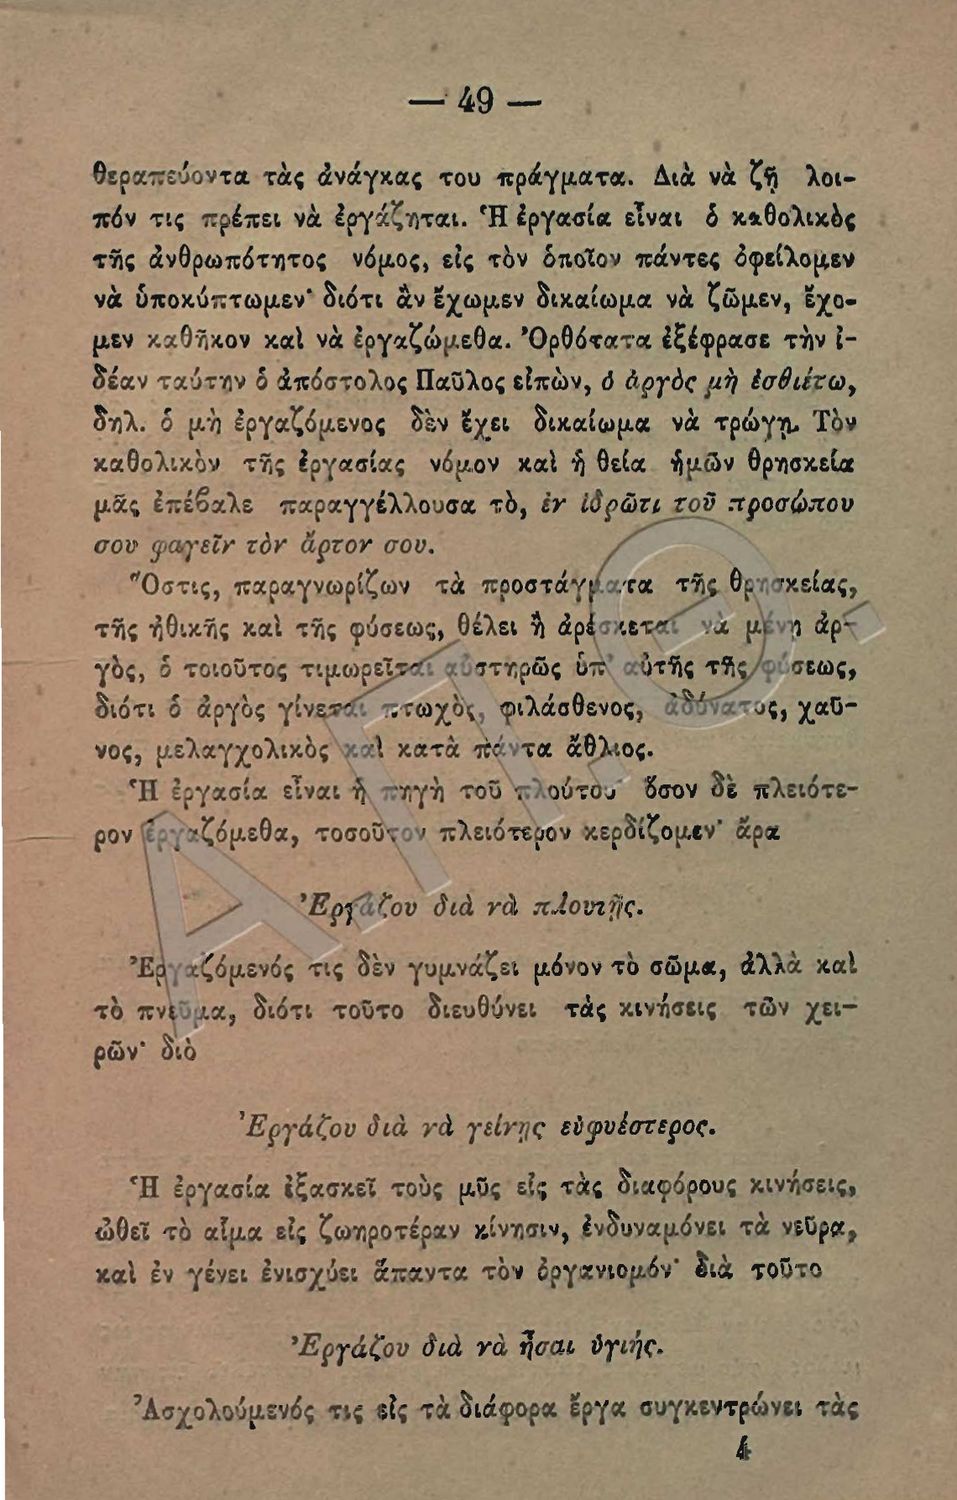 — 49 —
θεραπεύοντα τὰς ἀνάγκας του πράγματα. Διὰ νὰ ζῇ λοι-
πόν τις πρέπει νὰ ἐργάζηται. Ἡ ἐργασία εἶναι ὁ καθολικὸς
τῆς ἀνθρωπότητος νόμος, εἰς τὸν ὁποῖον πάντες ὀφείλομεν
νὰ ὑποκύπτωμεν· διότι ἂν ἔχωμεν δικαίωμα νὰ ζῶμεν, ἔχο-
μεν καθῆκον καὶ νὰ ἐργαζώμεθα. Ὀρθότατα ἐξέφρασε τὴν ἰ-
δέαν ταύτην ὁ ἀπόστολος Παῦλος εἰπὼν, ὁ ἀργὸς μὴ ἐσθιέτω,
δηλ. ὁ μὴ ἐργαζόμενος δὲν ἔχει δικαίωμα νὰ τρώγῃ. Τὸν
καθολικὸν τῆς ἐργασίας νόμον καὶ ἡ θεία ἡμῶν θρησκεία
μᾶς ἐπέβαλε παραγγέλλουσα τὸ, ἐν ἱδρῶτι τοῦ προσώπου
σου φαγεῖν τὸν ἄρτον σου.
Ὅστις, παραγνωρίζων τὰ προστάγματα τῆς θρησκείας,
τῆς ἠθικῆς καὶ τῆς φύσεως, θέλει ἢ ἀρέσκεται νὰ μένῃ ἀρ-
γὸς, ὁ τοιοῦτος τιμωρεῖται αὐστηρῶς ὑπ' αὐτῆς τῆς φύσεως,
διότι ὁ ἀργὸς γίνεται πτωχὸς, φιλάσθενος, ἀδύνατος, χαῦ-
νος, μελαγχολικὸς καὶ κατὰ πάντα ἄθλιος.
Ἡ ἐργασία εἶναι ἡ πηγὴ τοῦ πλούτου ὅσον δὲ πλειότε-
ρον ἐργαζόμεθα, τοσοῦτον πλειότερον κερδίζομεν· ἄρα
Ἐργάζου διὰ νὰ πλουτῇς.
Ἐργαζόμενός τις δὲν γυμνάζει μόνον τὸ σῶμα, ἀλλὰ καὶ
τὸ πνεῦμα, διότι τοῦτο διευθύνει τὰς κινήσεις τῶν χει-
ρῶν· διὸ
Ἐργάζου διὰ νὰ γείνῃς εὐφυέστερος.
Ἡ ἐργασία ἐξασκεῖ τοὺς μῦς εἰς τὰς διαφόρους κινήσεις,
ὠθεῖ τὸ αἷμα εἰς ζωηροτέραν κίνησιν, ἐνδυναμόνει τὰ νεῦρα,
καὶ ἐν γένει ἐνισχύει ἅπαντα τὸν ὀργανισμόν· διὰ τοῦτο
Ἐργάζου διὰ νὰ ἦσαι ὑγιής.
Ἀσχολούμενός τις εἰς τὰ διάφορα ἔργα συγκεντρώνει τὰς
4
Α.Π.Θ.